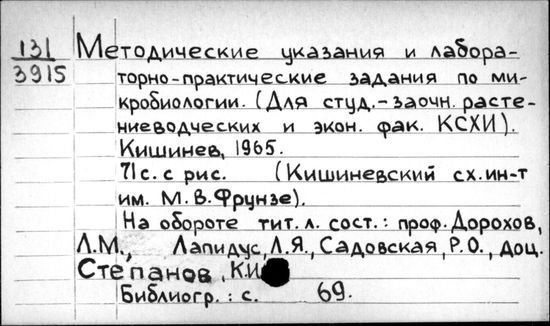 131
3915
Методические указания и лабора-
торно-практические задания по ми-
кробиологии. (Для студ.-заочн. расте-
ниеводческих и экон. фак. КСХИ).
Кишинев, 1965.
71 с. с рис. (Кишиневский сх. ин-т
им. М.В.Фрунзе).
На обороте тит. л. сост.: проф. Дорохов,
Л.М., Лапидус, Л.Я., Садовская, Р.О., доц.
Степанов, К.И
Библиогр.: с. 69.